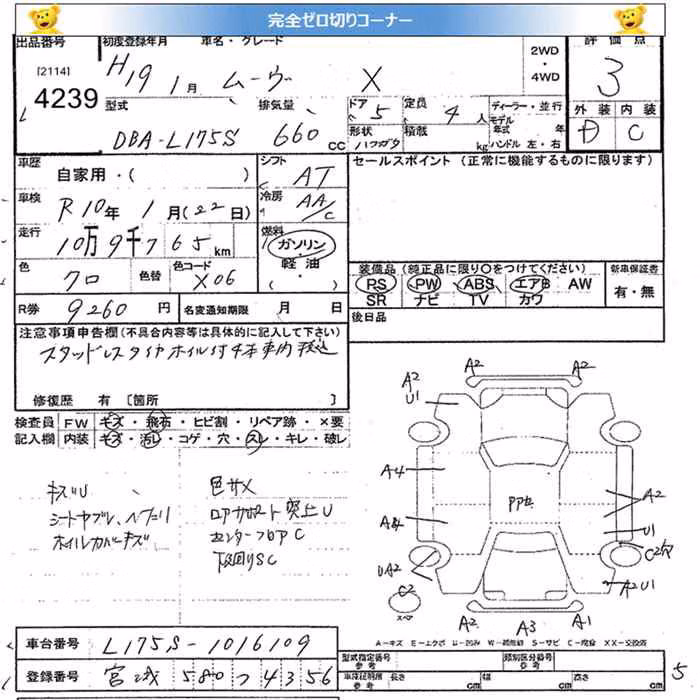 完全ゼロ切りコーナー
出品番号 初度登録年月 車名・グレード 2WD・4WD 評価点
[2114] H19 1月 ムーヴ X 3
4239 型式 排気量 ドア 5 定員 4人 ディーラー・並行 外装 内装
DBA-L175S 660cc 形状 ハッチバック 積載 kg モデル年式 年 D C
ハンドル 左・右
車歴 自家用・( ) シフト AT セールスポイント (正常に機能するものに限ります)
車検 R10年 1月(22日) 冷房 AA/C
走行 10万9千765km 燃料 ガソリン・軽油・( )
色 クロ 色替 色コード X06 装備品 (純正品に限り○をつけてください) 新車保証書
PS PW ABS エアB AW 有・無
R券 9260円 名変通知期限 月 日 SR ナビ TV カワ
注意事項申告欄(不具合内容等は具体的に記入して下さい) 後日品
スタッドレスタイヤホイル付4本車内積込
修復歴 有 [箇所 ]
検査員 FW キズ・飛石・ヒビ割・リペア跡・×要
記入欄 内装 キズ・汚レ・コゲ・穴・スレ・キレ・破レ
A2 A2
A2 U1
キズU 色サメ A4 A2
シートヤブレ、ヘタリ ロアサポート突上U PP
ホイルカバーキズ センターフロアC A4 U1
下回りSC C2穴
UA2 C2 A2U1
スペア A2 A3 A1
A-キズ E-エクボ U-凹み W-補修跡 S-サビ C-腐食 XX-交換済
車台番号 L175S-1016109 型式指定番号 参考 類別区分番号 参考
登録番号 宮城 580 ツ 4356 車庫証明用 参考 長さ cm 幅 cm 高さ cm 5